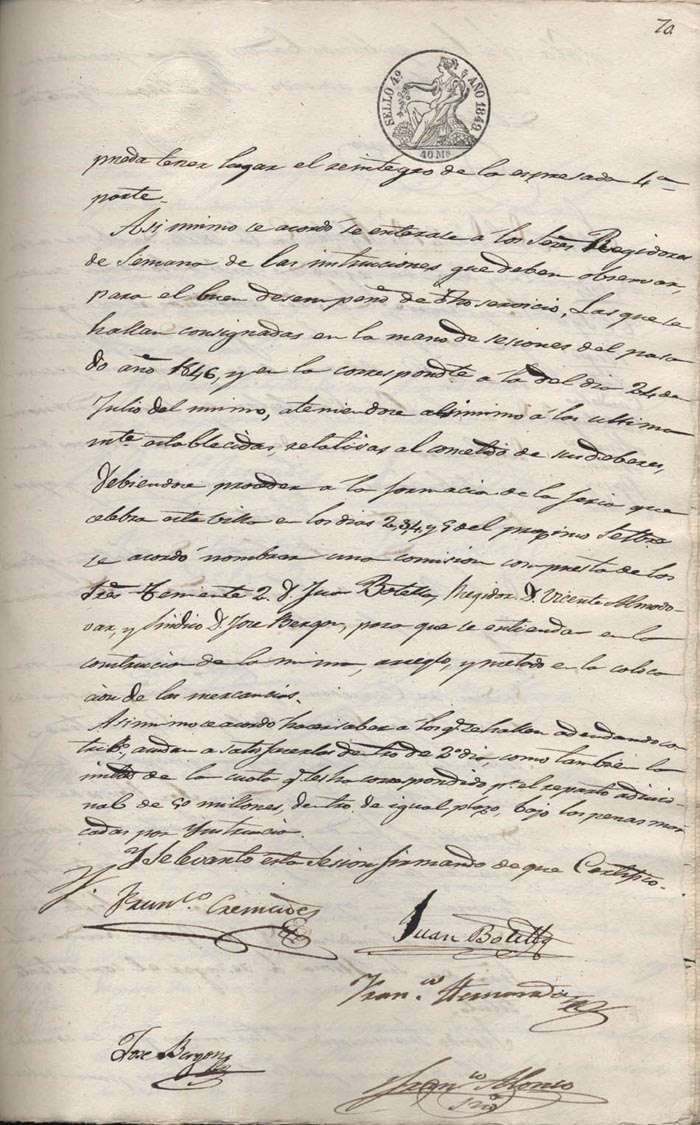 70
SELLO 4º AÑO 1849
40 Ms
pueda tener lugar el reintegro de la espresada 4ª
parte.
Asimimo se acordó se enterase a los Sres Regidores
de Semana de las intruciones que deben observar,
para el buen desempeño de dho servicio, Las que se
hallan consignadas en la mano de sesiones del pasa
do año 1846, y en la correspondte a la del dia 24 de
Julio del mimo, ateniendose asimimo á las ultima
mte establecidas, relativas al cometido de sus deberes,
Debiendose proceder a la formacion de la feria que
celebra esta Villa en los dias 2, 3, 4, y 5 del proximo Setbre
se acordó nombrar una comision compuesta de los
Sres Teniente 2º D. Juan Botella, Regidor D. Vicente Almodo
var, y Sindico D. Jose Bergon, para que se entiendan en la
contrucion de la mima, arreglo, y metodo en la coloca
cion de las mercancias.
Asimimo se acordo hacer saber a los qe se hallan adeudando con
tribs, acudan a satisfacerlas dentro de 2º dia, como tambien la
mitad de la cuota qe les ha correspondido pr el reparto adicio
nal de 50 millones, dentro de igual plazo, bajo las penas mar
cadas por Instrucion.
Y se levanto esta Sesion firmando de que Certifico.
Franco Cremades
Juan Botella
Franco Hernandez
Jose Bergon
Franco Alonso
Srio